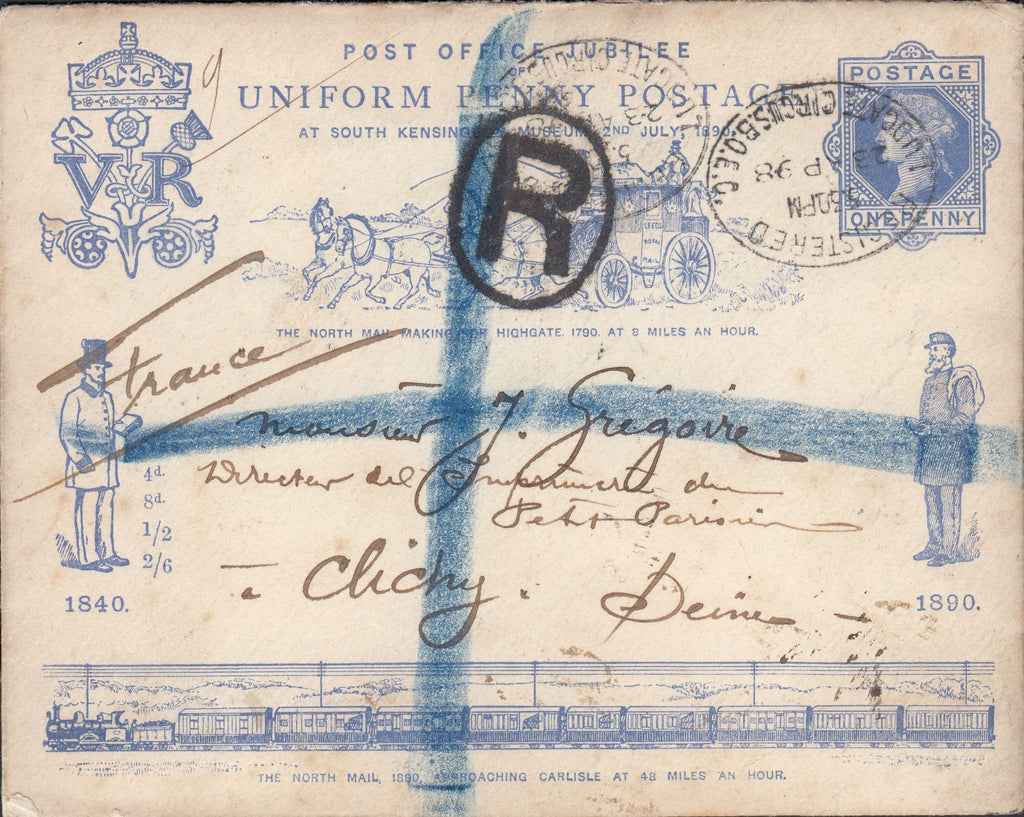 POST OFFICE JUBILEE
UNIFORM PENNY POSTAGE
AT SOUTH KENSINGTON MUSEUM 2ND JULY, 1890
9
V R
POSTAGE
ONE PENNY
REGISTERED
LUDGATE CIRCUS.B.O.E.C.
5 30PM
23 AP 98
R
LEEDS
ROYAL
THE NORTH MAIL MAKING FOR HIGHGATE. 1790. AT 8 MILES AN HOUR.
France
Monsieur J. Grégoire
Directeur de l'Imprimerie du
Petit Parisien
à Clichy. Seine
4d.
8d.
1/2
2/6
1840.
1890.
THE NORTH MAIL, 1890, APPROACHING CARLISLE AT 48 MILES AN HOUR.